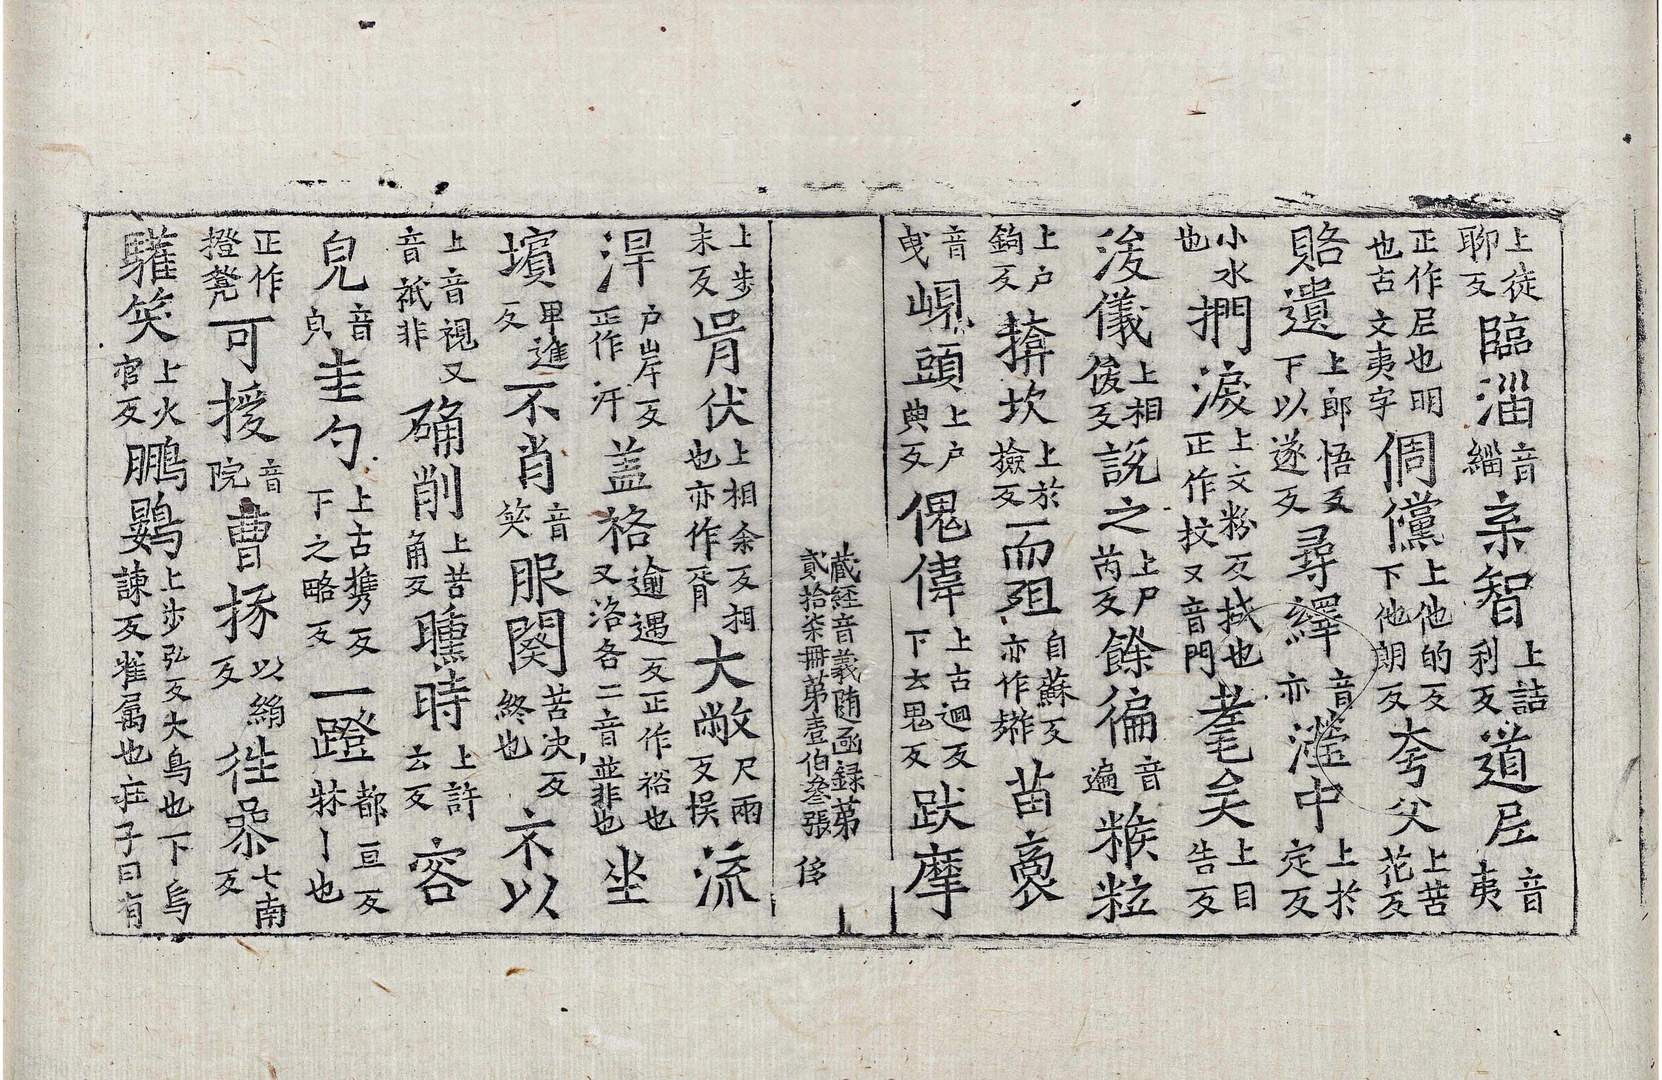 上徒聊反臨淄音緇亲智上詰利反道𡰱音夷
正作𡰱也明也古文夷字倜儻上他的反下他朗反夸父上苦花反
賂遺上郎悟反下以遂反尋繹音亦瀅中上於定反
小水也捫淚上文粉反拭也正作抆又音門耄矣上目告反
浚儀上相俊反說之上尸芮反餘徧音遍糇粒
上户鈎反揜坎上於撿反而殂自蘇反亦作𣨙苗裔
音曵峴頭上户典反傀偉上古迴反下云鬼反趺摩
藏经音義随函録苐
貳拾柒冊苐壹伯叄張 侈
上步末反㞕伏上相余反相也亦作胥大敞尺兩反悮流
汗户岸反正作汗盖格逾遇反正作裕也又洛各二音並非也坐
殯卑進反不肖音笑服闋苦决反終也不以
上音視又音祇非确削上苦角反曛時上許云反容
皃音貞圭勺上古携反下之略反一蹬都亘反牀丨也
正作橙凳可授音院曹掾以絹反徃㕘七南反
驩笑上火官反鵬鷃上步弘反大鳥也下烏諫反雀属也庄子曰有